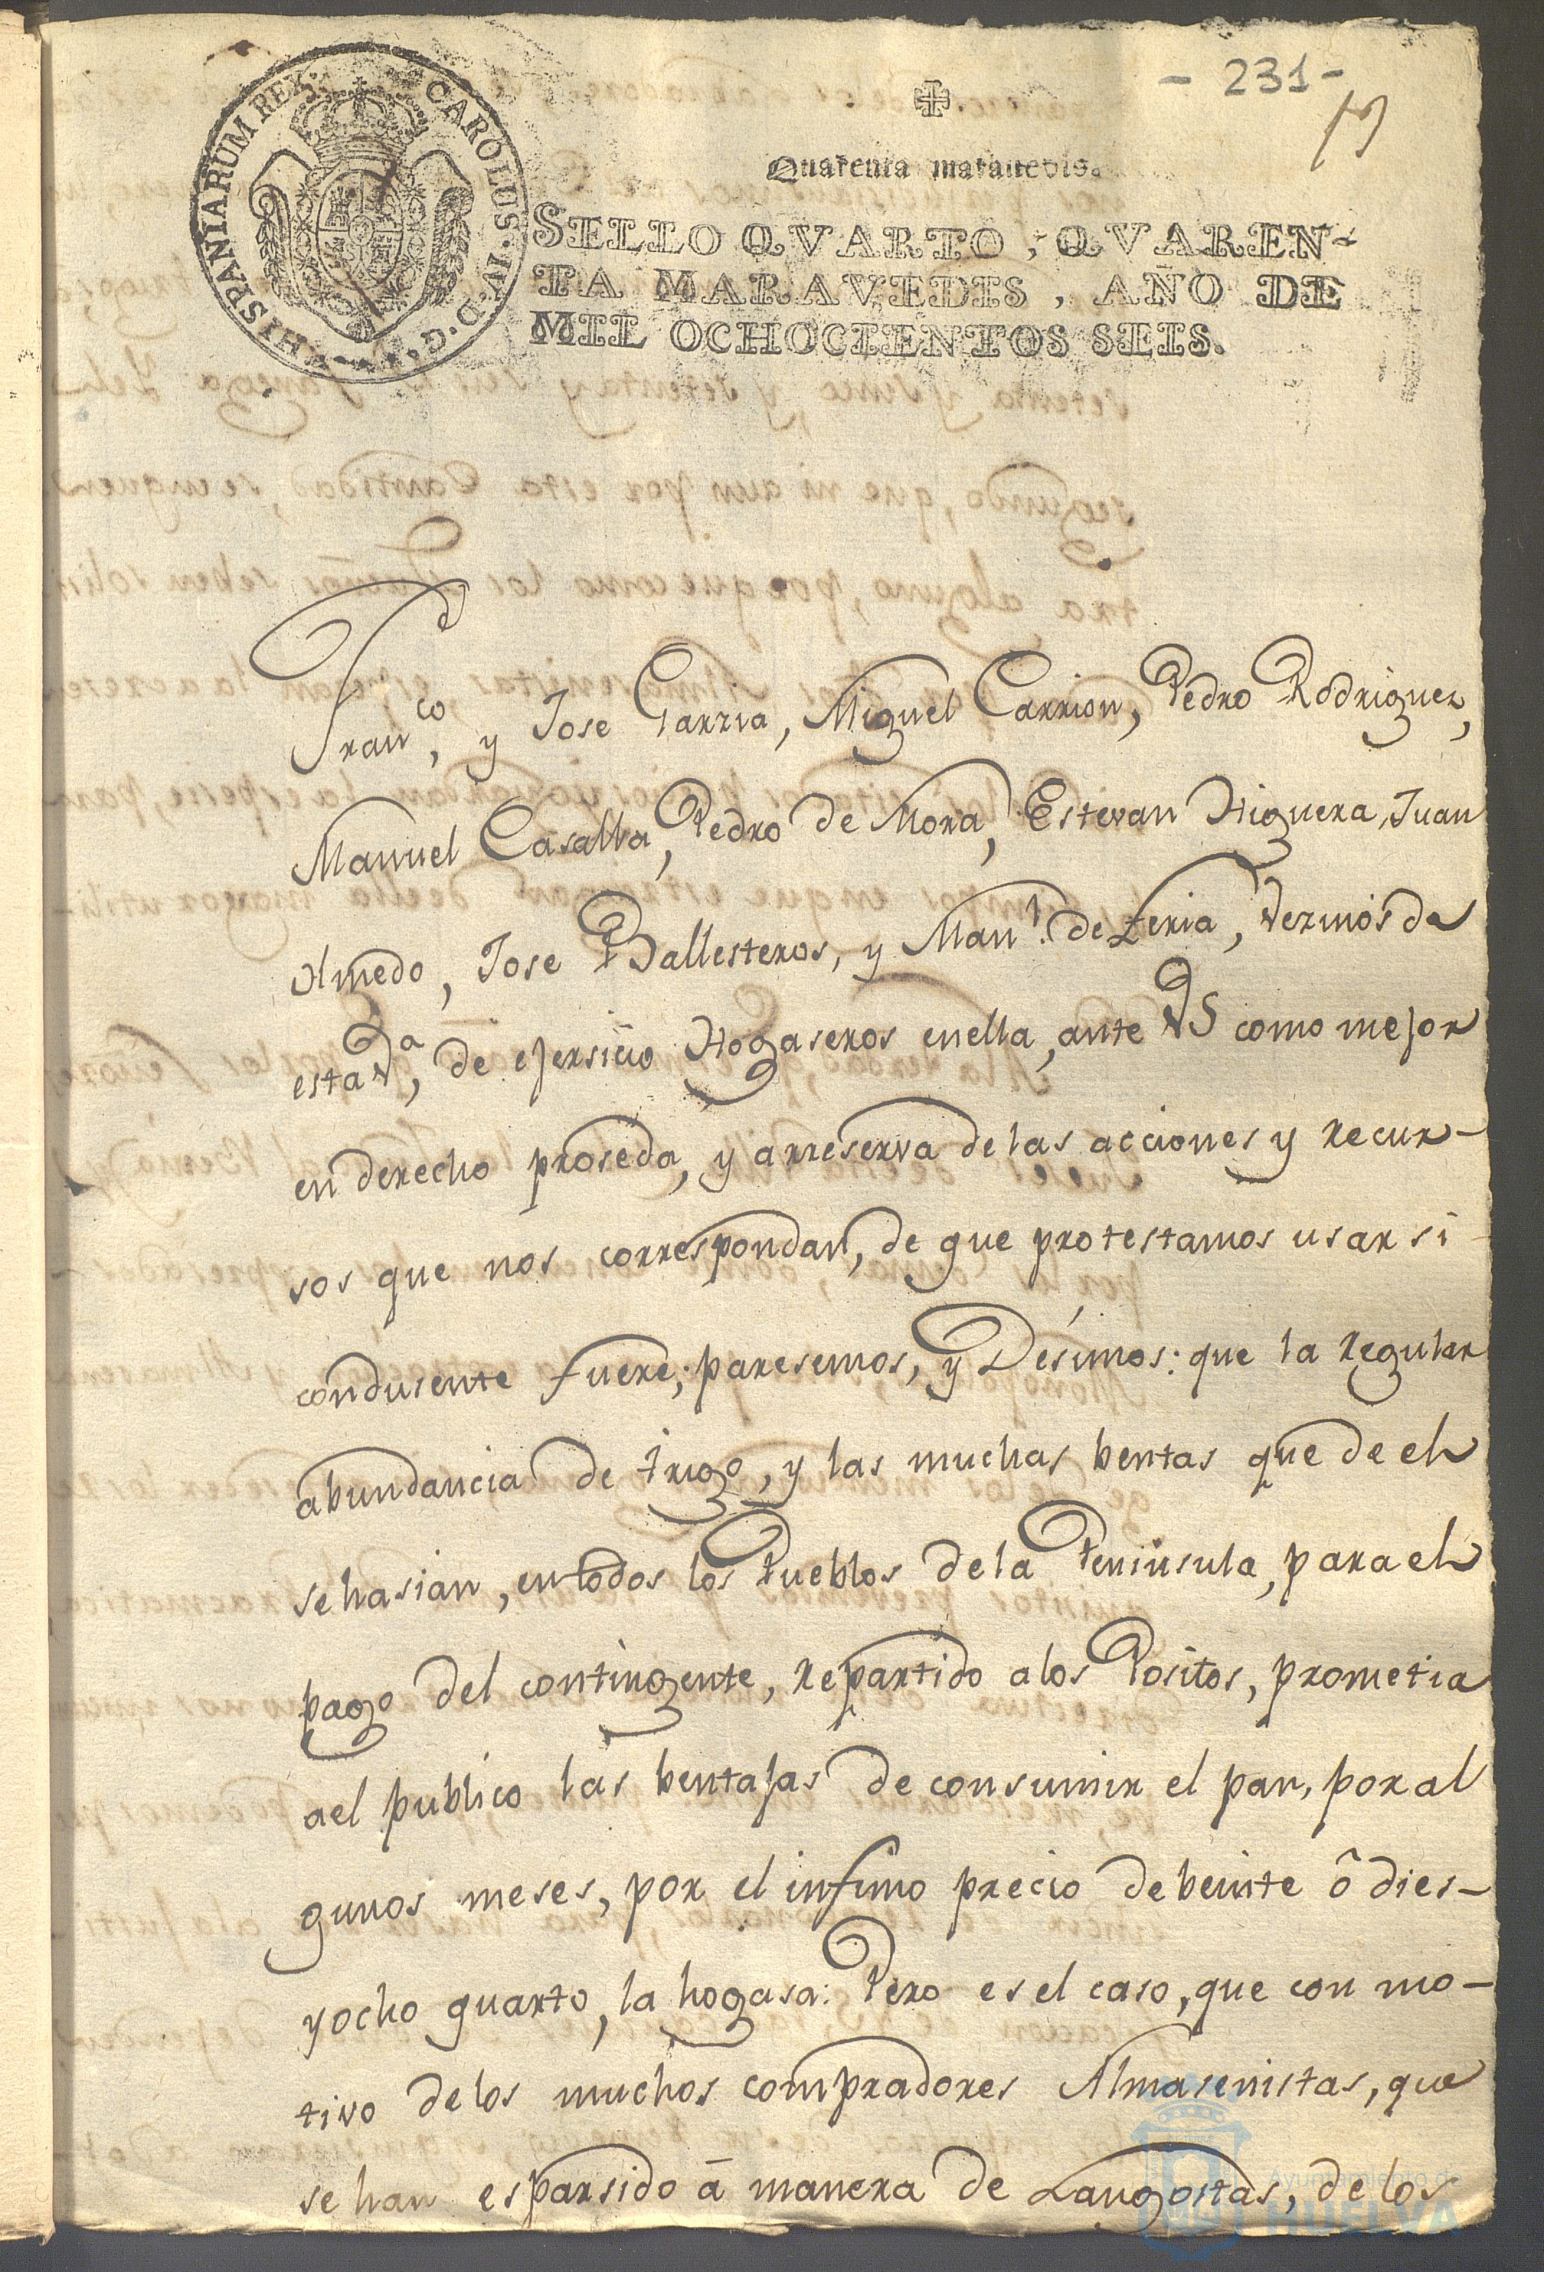 - 231 -
HISPANIARUM REX. CAROLUS. IV. D. G.
Quarenta maravedis.
SELLO QVARTO, QVAREN-
TA MARAVEDIS, AÑO DE
MIL OCHOCIENTOS SEIS.
Franco, y Jose Garzia, Miguel Carrion, Pedro Rodriguez,
Manuel Casalla, Pedro de Mora, Estevan Higuera, Juan
Olmedo, Jose Ballesteros, y Manl. de Feria, vezinos de
esta Va, de ejersicio Hogaseros enella, ante VS como mejor
en derecho proseda, y arreserva de las acciones y recur-
sos que nos correspondan, de que protestamos usar si
condusente fuere; paresemos, y Desimos: que la regular
abundancia de trigo, y las muchas bentas que de el
se hasian, en todos los Pueblos dela Peninsula, para el
pago del contingente, repartido alos Positos, prometia
ael publico las bentajas de consumir el pan, por al
gunos meses, por el infimo precio de beinte ô dies-
yocho quarto, la hogasa: Pero es el caso, que con mo-
tivo delos muchos compradores Almasenistas, que
se han esparsido â manera de Langostas, delos
Ayuntamiento de
HUELVA